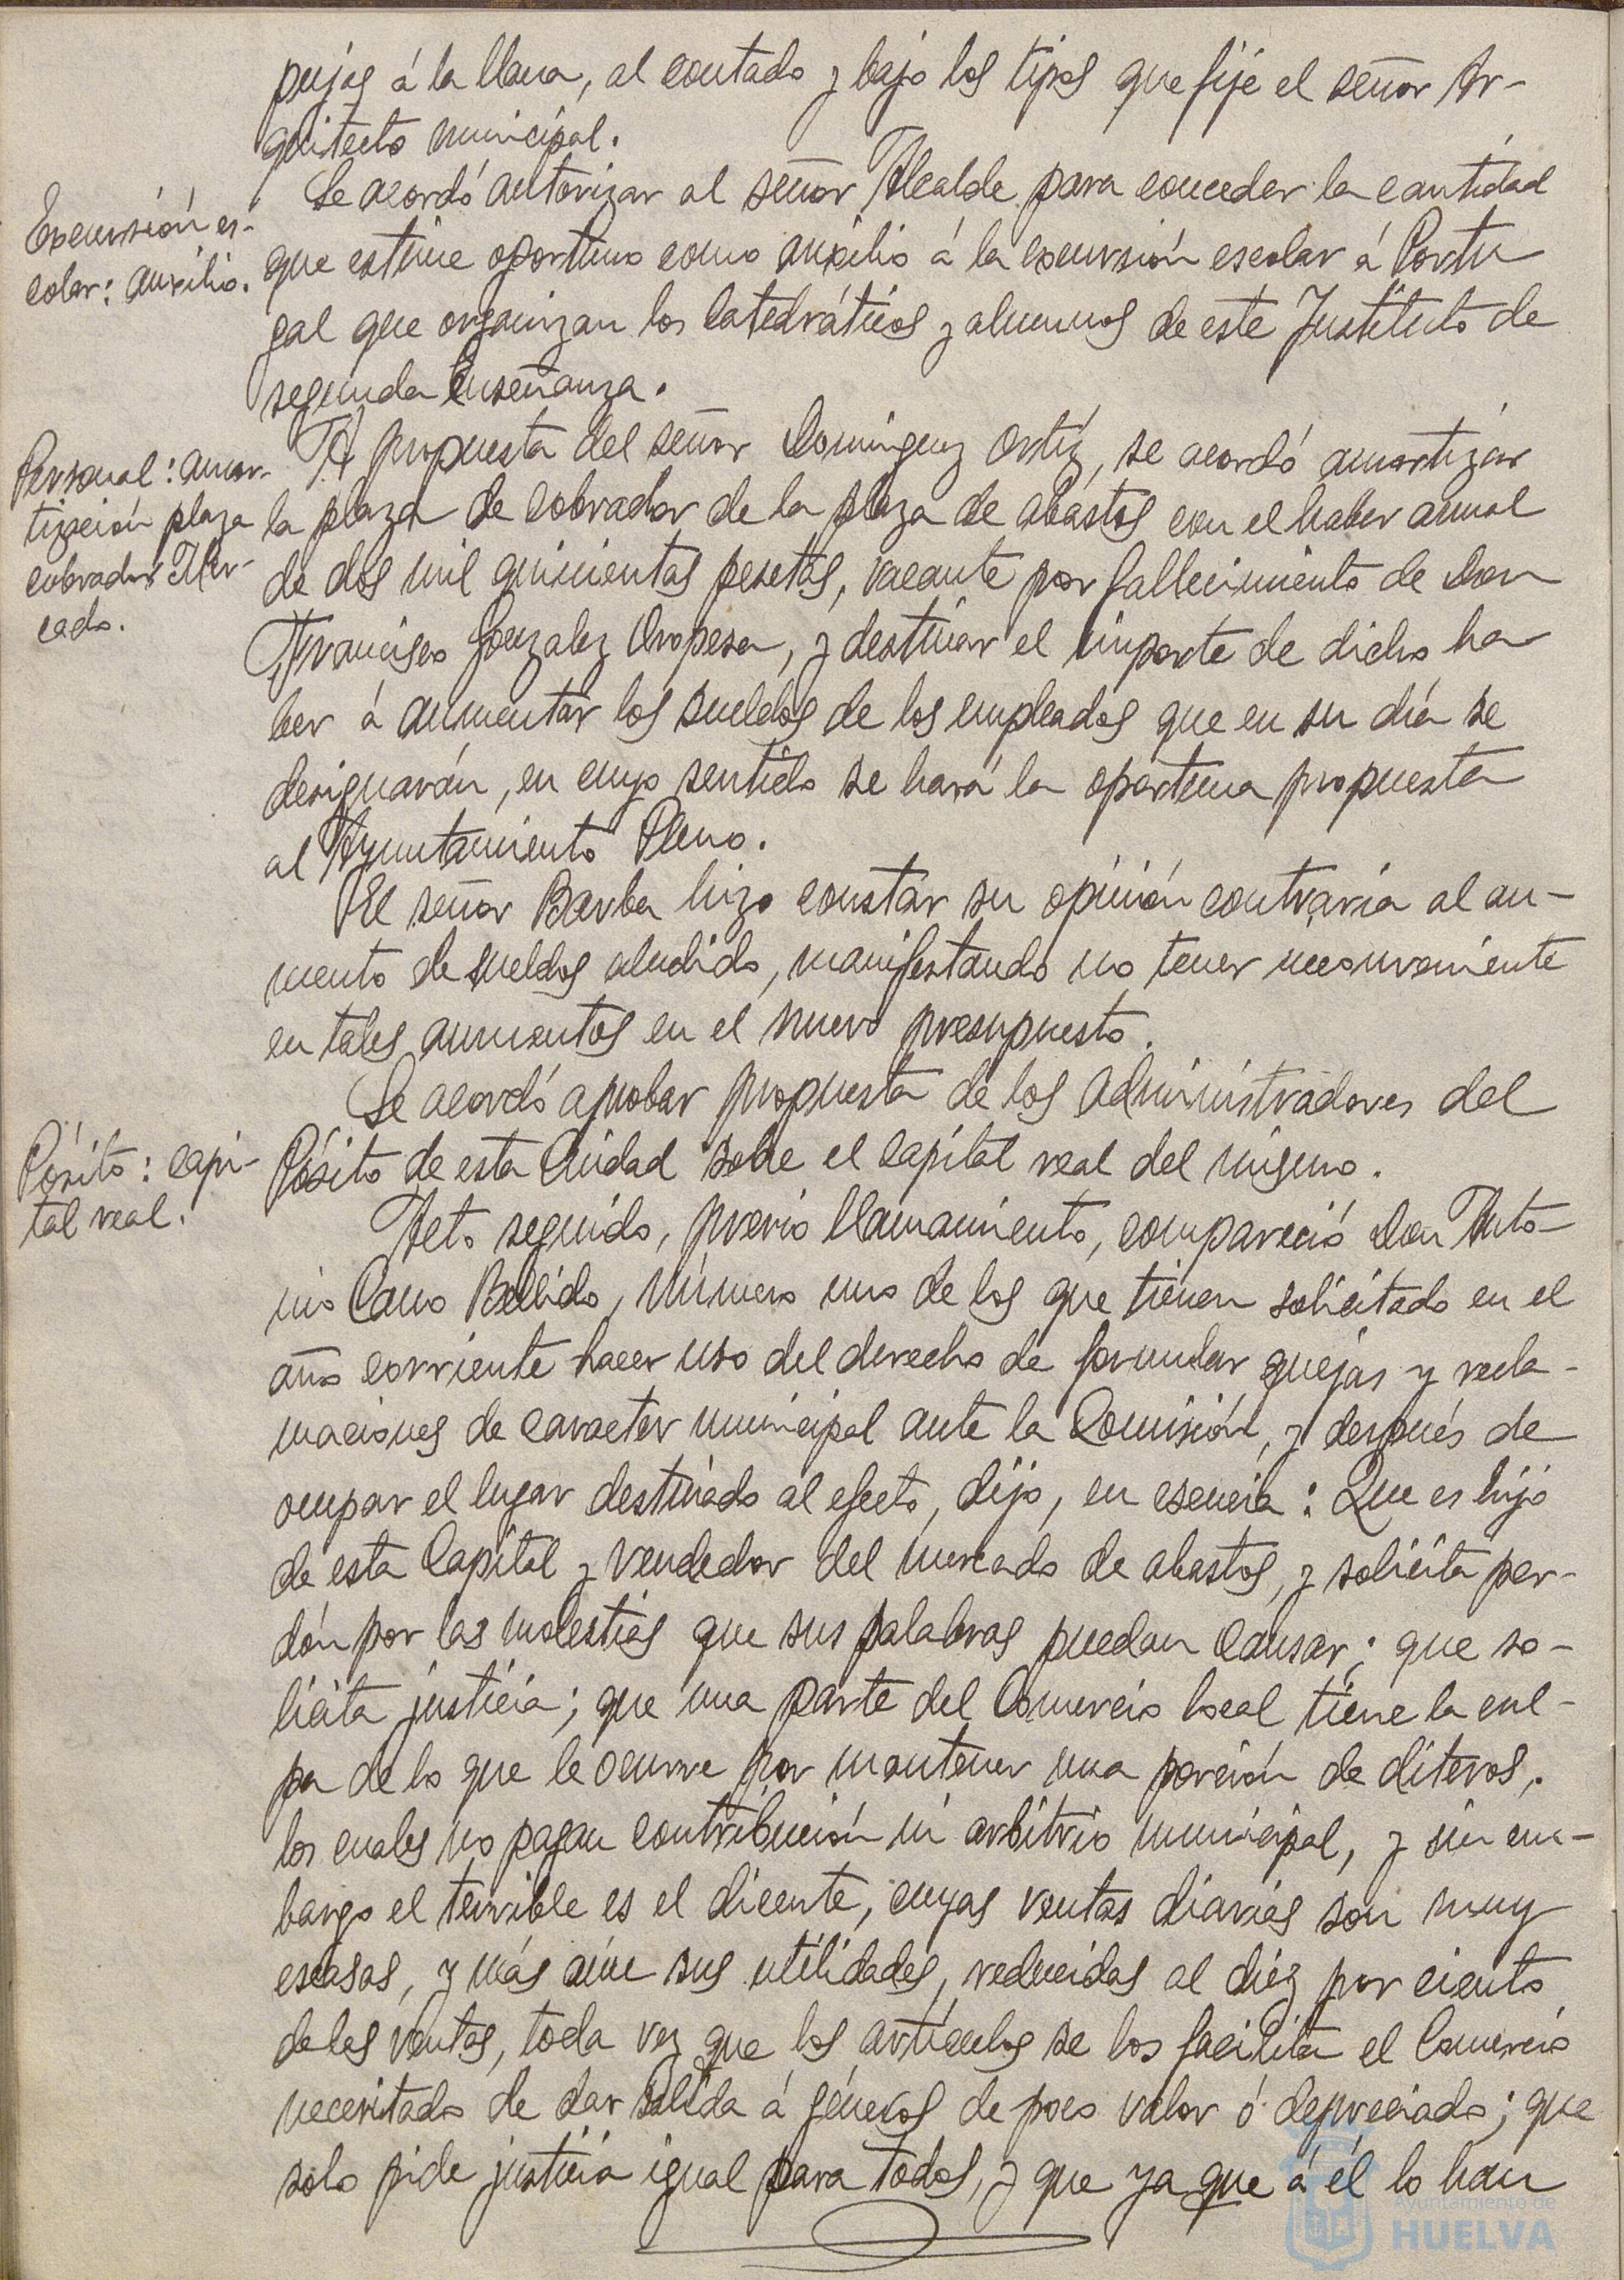 pujas á la llana, al contado y bajo los tipos que fije el señor Ar-
quitecto municipal.
Excursión es-
colar: auxilio.
Se acordó autorizar al señor Alcalde para conceder la cantidad
que estime oportuno como auxilio á la excursión escolar á Portu
gal que organizan los Catedráticos y alumnos de este Instituto de
segunda Enseñanza.
Personal: amor-
tización plaza
cobrador Mer-
cado.
A propuesta del señor Dominguez Ortíz, se acordó amortizar
la plaza de Cobrador de la plaza de abastos con el haber anual
de dos mil quinientas pesetas, vacante por fallecimiento de Don
Francisco Gonzalez Oropesa, y destinar el importe de dicho ha
ber á aumentar los sueldos de los empleados que en su día se
designarán, en cuyo sentido se hará la oportuna propuesta
al Ayuntamiento Pleno.
El señor Barba hizo constar su opinión contraria al au-
mento de sueldos aludido, manifestando no tener inconveniente
en tales aumentos en el nuevo presupuesto.
Pósito: capi-
tal real.
Se acordó aprobar propuesta de los Administradores del
Pósito de esta Ciudad sobre el capital real del mismo.
Acto seguido, previo llamamiento, compareció Don Anto-
nio Cano Bellido, número uno de los que tienen solicitado en el
año corriente hacer uso del derecho de formular quejas y recla-
maciones de caracter municipal ante la Comisión, y después de
ocupar el lugar destinado al efecto, dijo, en esencia: Que es hijo
de esta Capital y vendedor del mercado de abastos, y solicita per-
dón por las molestias que sus palabras puedan causar; que so-
licita justicia; que una parte del Comercio local tiene la cul-
pa de lo que le ocurre por mantener una porción de diteros,
los cuales no pagan contribución ni arbitrio municipal, y sin em-
bargo el temible es el dicente, cuyas ventas diarias son muy
escasas, y más aún sus utilidades, reducidas al diez por ciento
de las ventas, toda vez que los artículos se los facilita el Comercio
necesitado de dar salida á géneros de poco valor ó depreciado; que
solo pide justicia igual para todos, y que ya que á él lo han
Ayuntamiento de
HUELVA